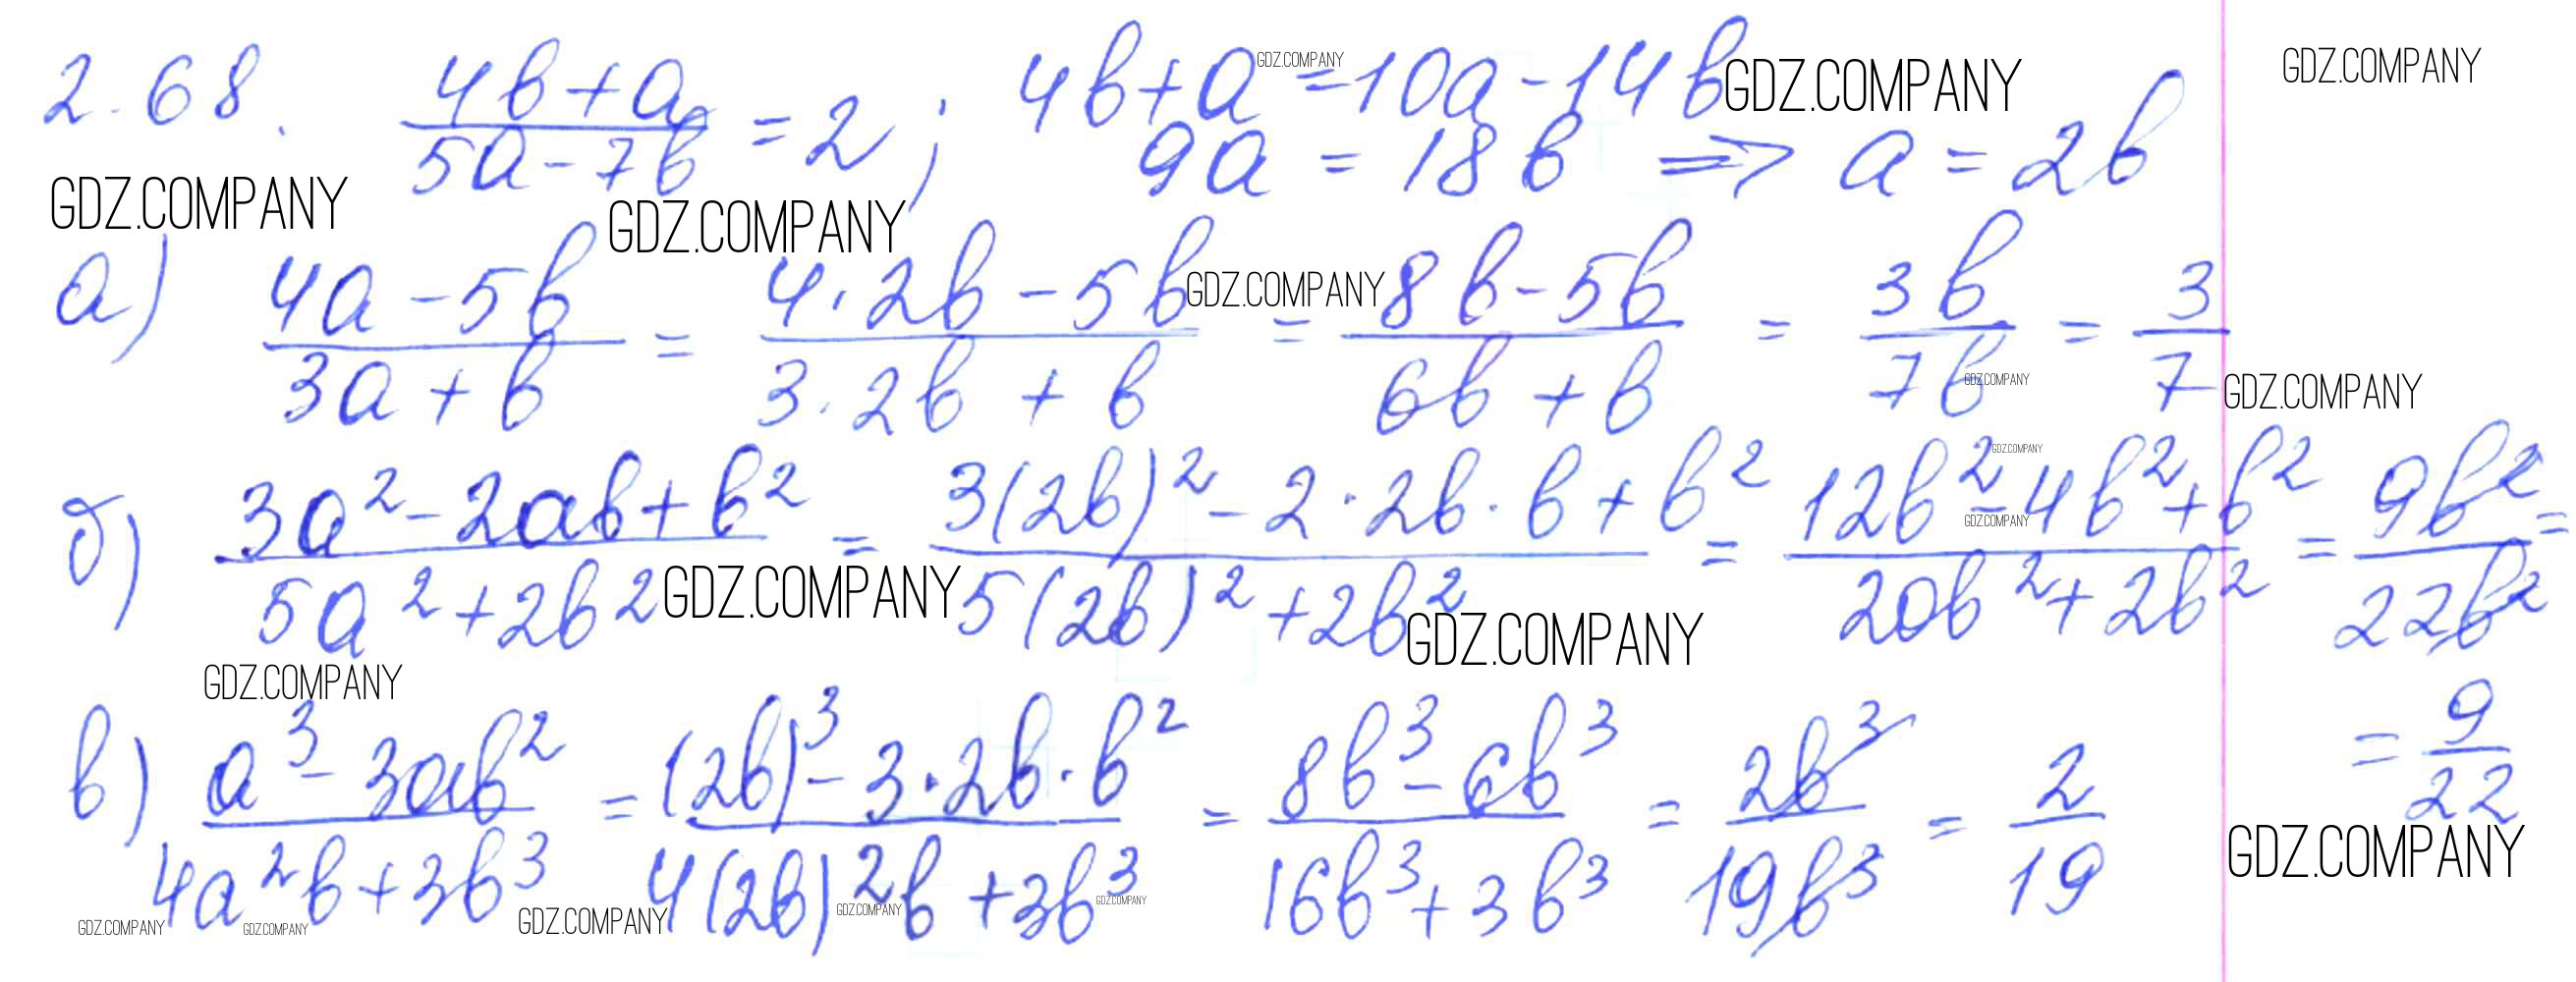 2.68. (4b+a)/(5a-7b) = 2; 4b+a = 10a-14b GDZ.COMPANY GDZ.COMPANY GDZ.COMPANY
9a = 18b => a = 2b
GDZ.COMPANY GDZ.COMPANY
а) (4a-5b)/(3a+b) = (4·2b-5b)/(3·2b+b) = (8b-5b)/(6b+b) = 3b/7b = 3/7
GDZ.COMPANY GDZ.COMPANY GDZ.COMPANY
б) (3a²-2ab+b²)/(5a²+2b²) = (3(2b)²-2·2b·b+b²)/(5(2b)²+2b²) = (12b²-4b²+b²)/(20b²+2b²) = 9b²/22b² =
= 9/22
GDZ.COMPANY GDZ.COMPANY GDZ.COMPANY GDZ.COMPANY GDZ.COMPANY
в) (a³-3ab²)/(4a²b+3b³) = ((2b)³-3·2b·b²)/(4(2b)²b+3b³) = (8b³-6b³)/(16b³+3b³) = 2b³/19b³ = 2/19
GDZ.COMPANY
GDZ.COMPANY GDZ.COMPANY GDZ.COMPANY GDZ.COMPANY GDZ.COMPANY